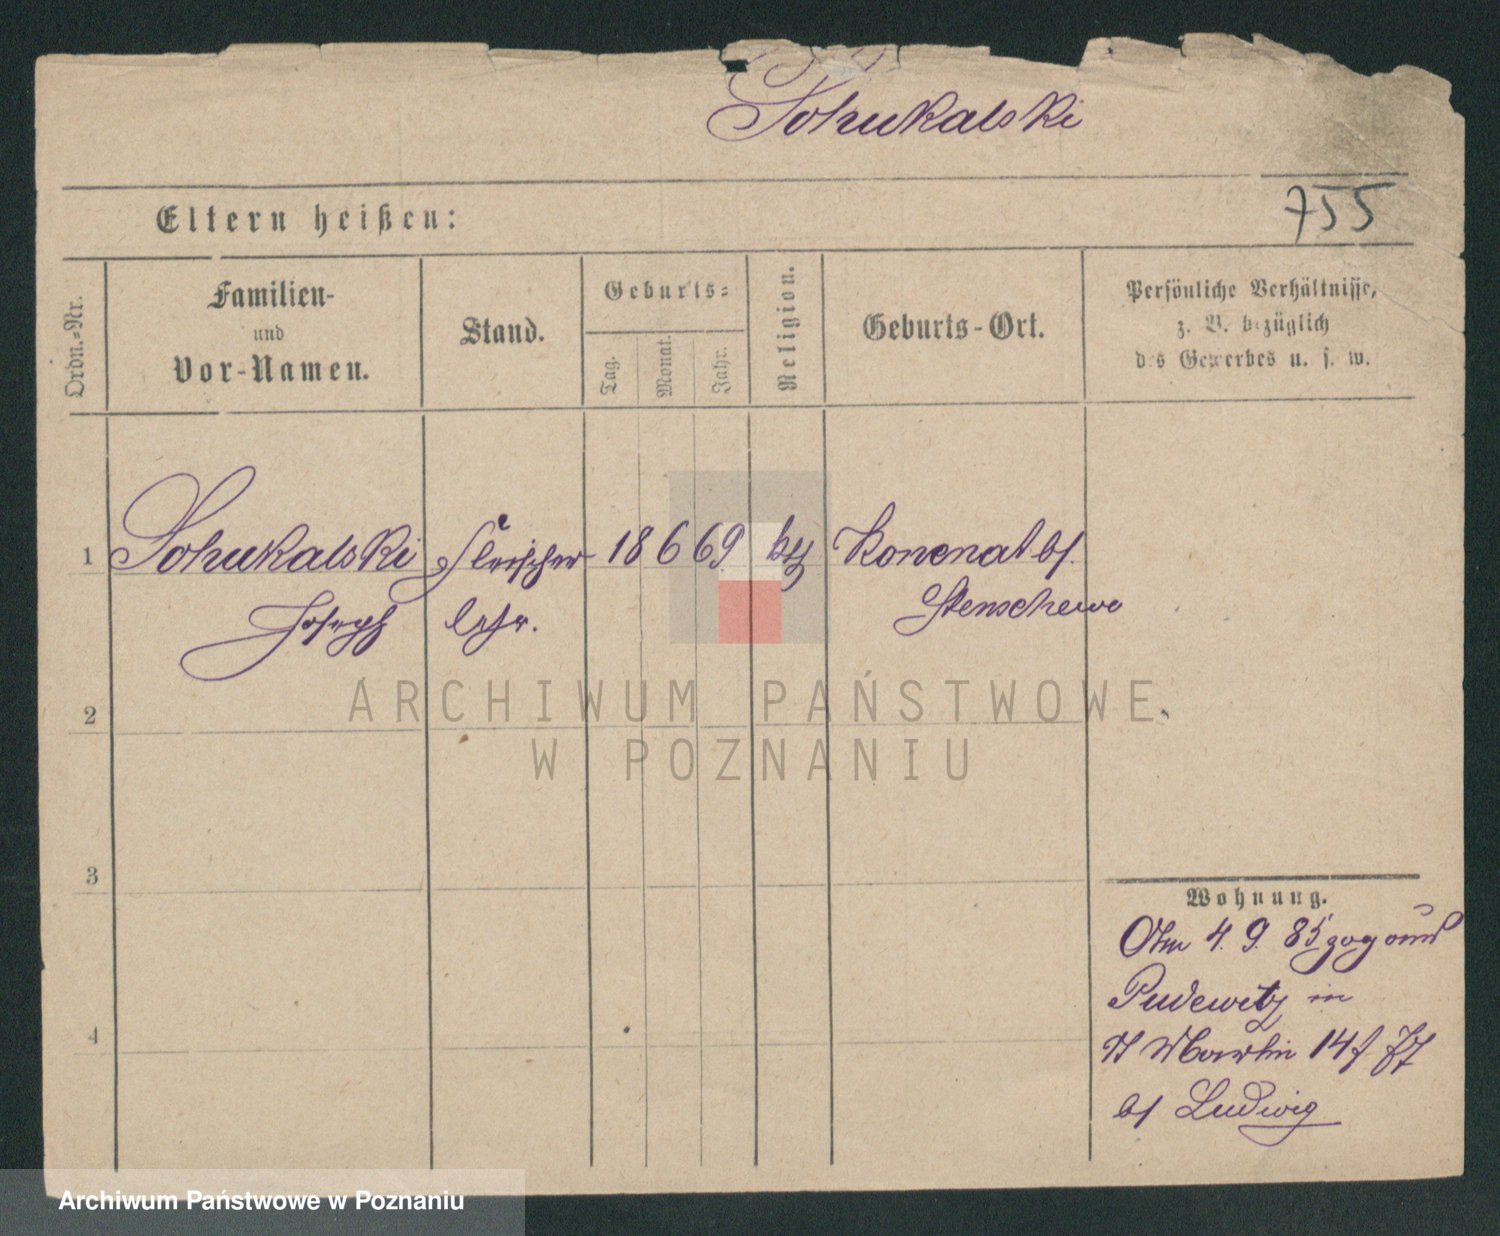 Sohukalski
755
Eltern heißen:
Ordn.-Nr.
Familien-
und
Vor-Namen.
Stand.
Geburts-
Tag.
Monat.
Jahr.
Religion.
Geburts-Ort.
Persönliche Verhältnisse,
z. B. bezüglich
des Gewerbes u. s. w.
1 Sohukalski Fleischer 18 6 69. Konenat bf.
Joseph lehr. Stenschewo
ARCHIWUM PAŃSTWOWE
2
W POZNANIU
3
Wohnung.
4. 9. 85 zog aus
Pudewitz in
4
St Martin 14
bf Ludwig
Archiwum Państwowe w Poznaniu